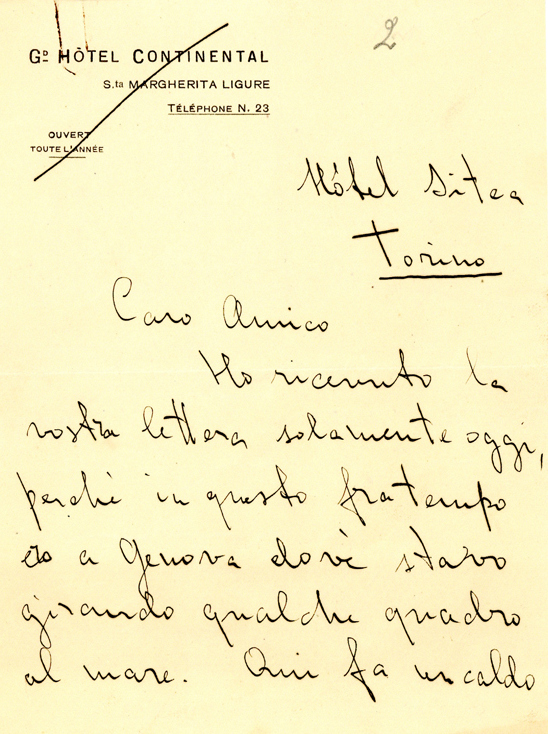 2
Gᴰ HÔTEL CONTINENTAL
S.ta MARGHERITA LIGURE
TÉLÉPHONE N. 23
OUVERT
TOUTE L'ANNÉE
Hôtel Sitea
Torino
Caro Amico
Ho ricevuto la
vostra lettera solamente oggi,
perchè in questo fratempo
ero a Genova dovè stavo
girando qualche quadro
al mare. Qui fa un caldo